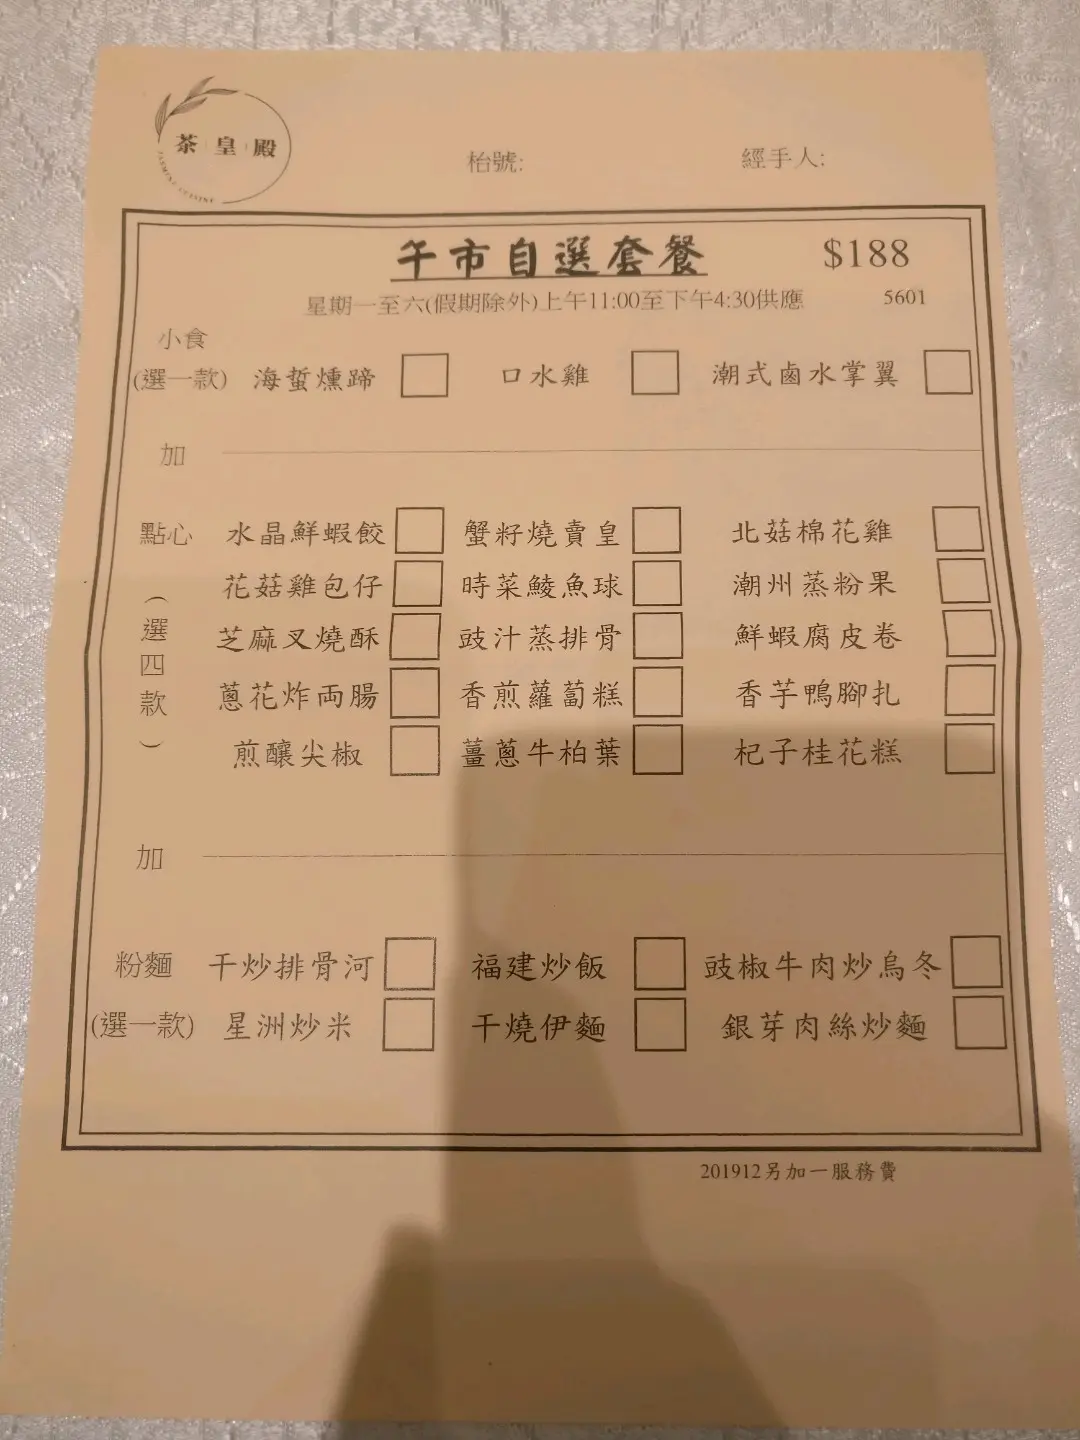 茶皇殿
JASMINE CUISINE
枱號: 經手人:
午市自選套餐 $188
星期一至六(假期除外)上午11:00至下午4:30供應 5601
小食
(選一款) 海蜇燻蹄 口水雞 潮式鹵水掌翼
加
點心 水晶鮮蝦餃 蟹籽燒賣皇 北菇棉花雞
(選四款)
花菇雞包仔 時菜鯪魚球 潮州蒸粉果
芝麻叉燒酥 豉汁蒸排骨 鮮蝦腐皮卷
蔥花炸両腸 香煎蘿蔔糕 香芋鴨腳扎
煎釀尖椒 薑蔥牛柏葉 杞子桂花糕
加
粉麵 干炒排骨河 福建炒飯 豉椒牛肉炒烏冬
(選一款) 星洲炒米 干燒伊麵 銀芽肉絲炒麵
201912另加一服務費